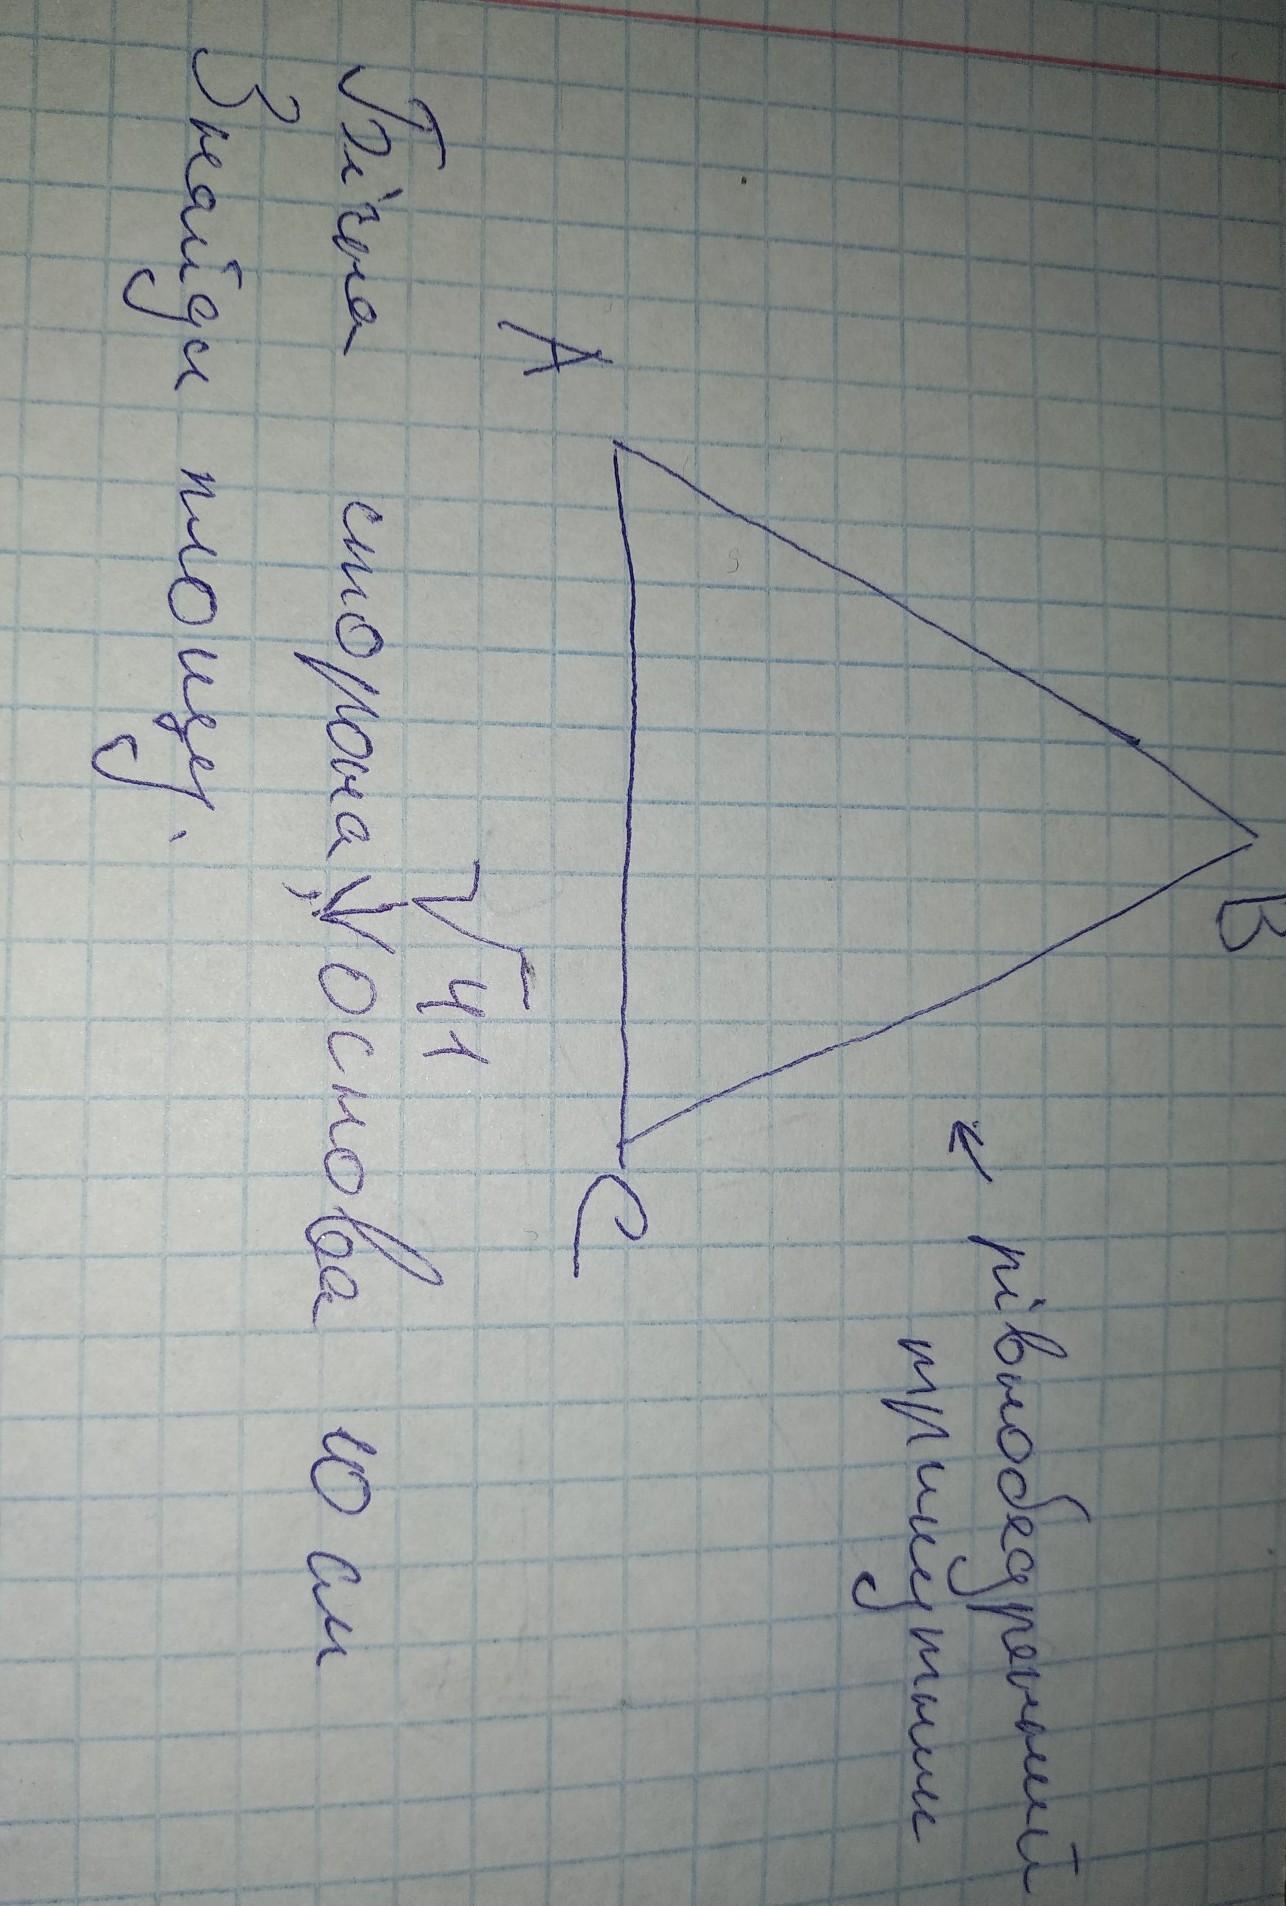 B
← рівнобедрений
трикутник
A
C
√41
Бічна сторона, основа 10 см
Знайди площу.